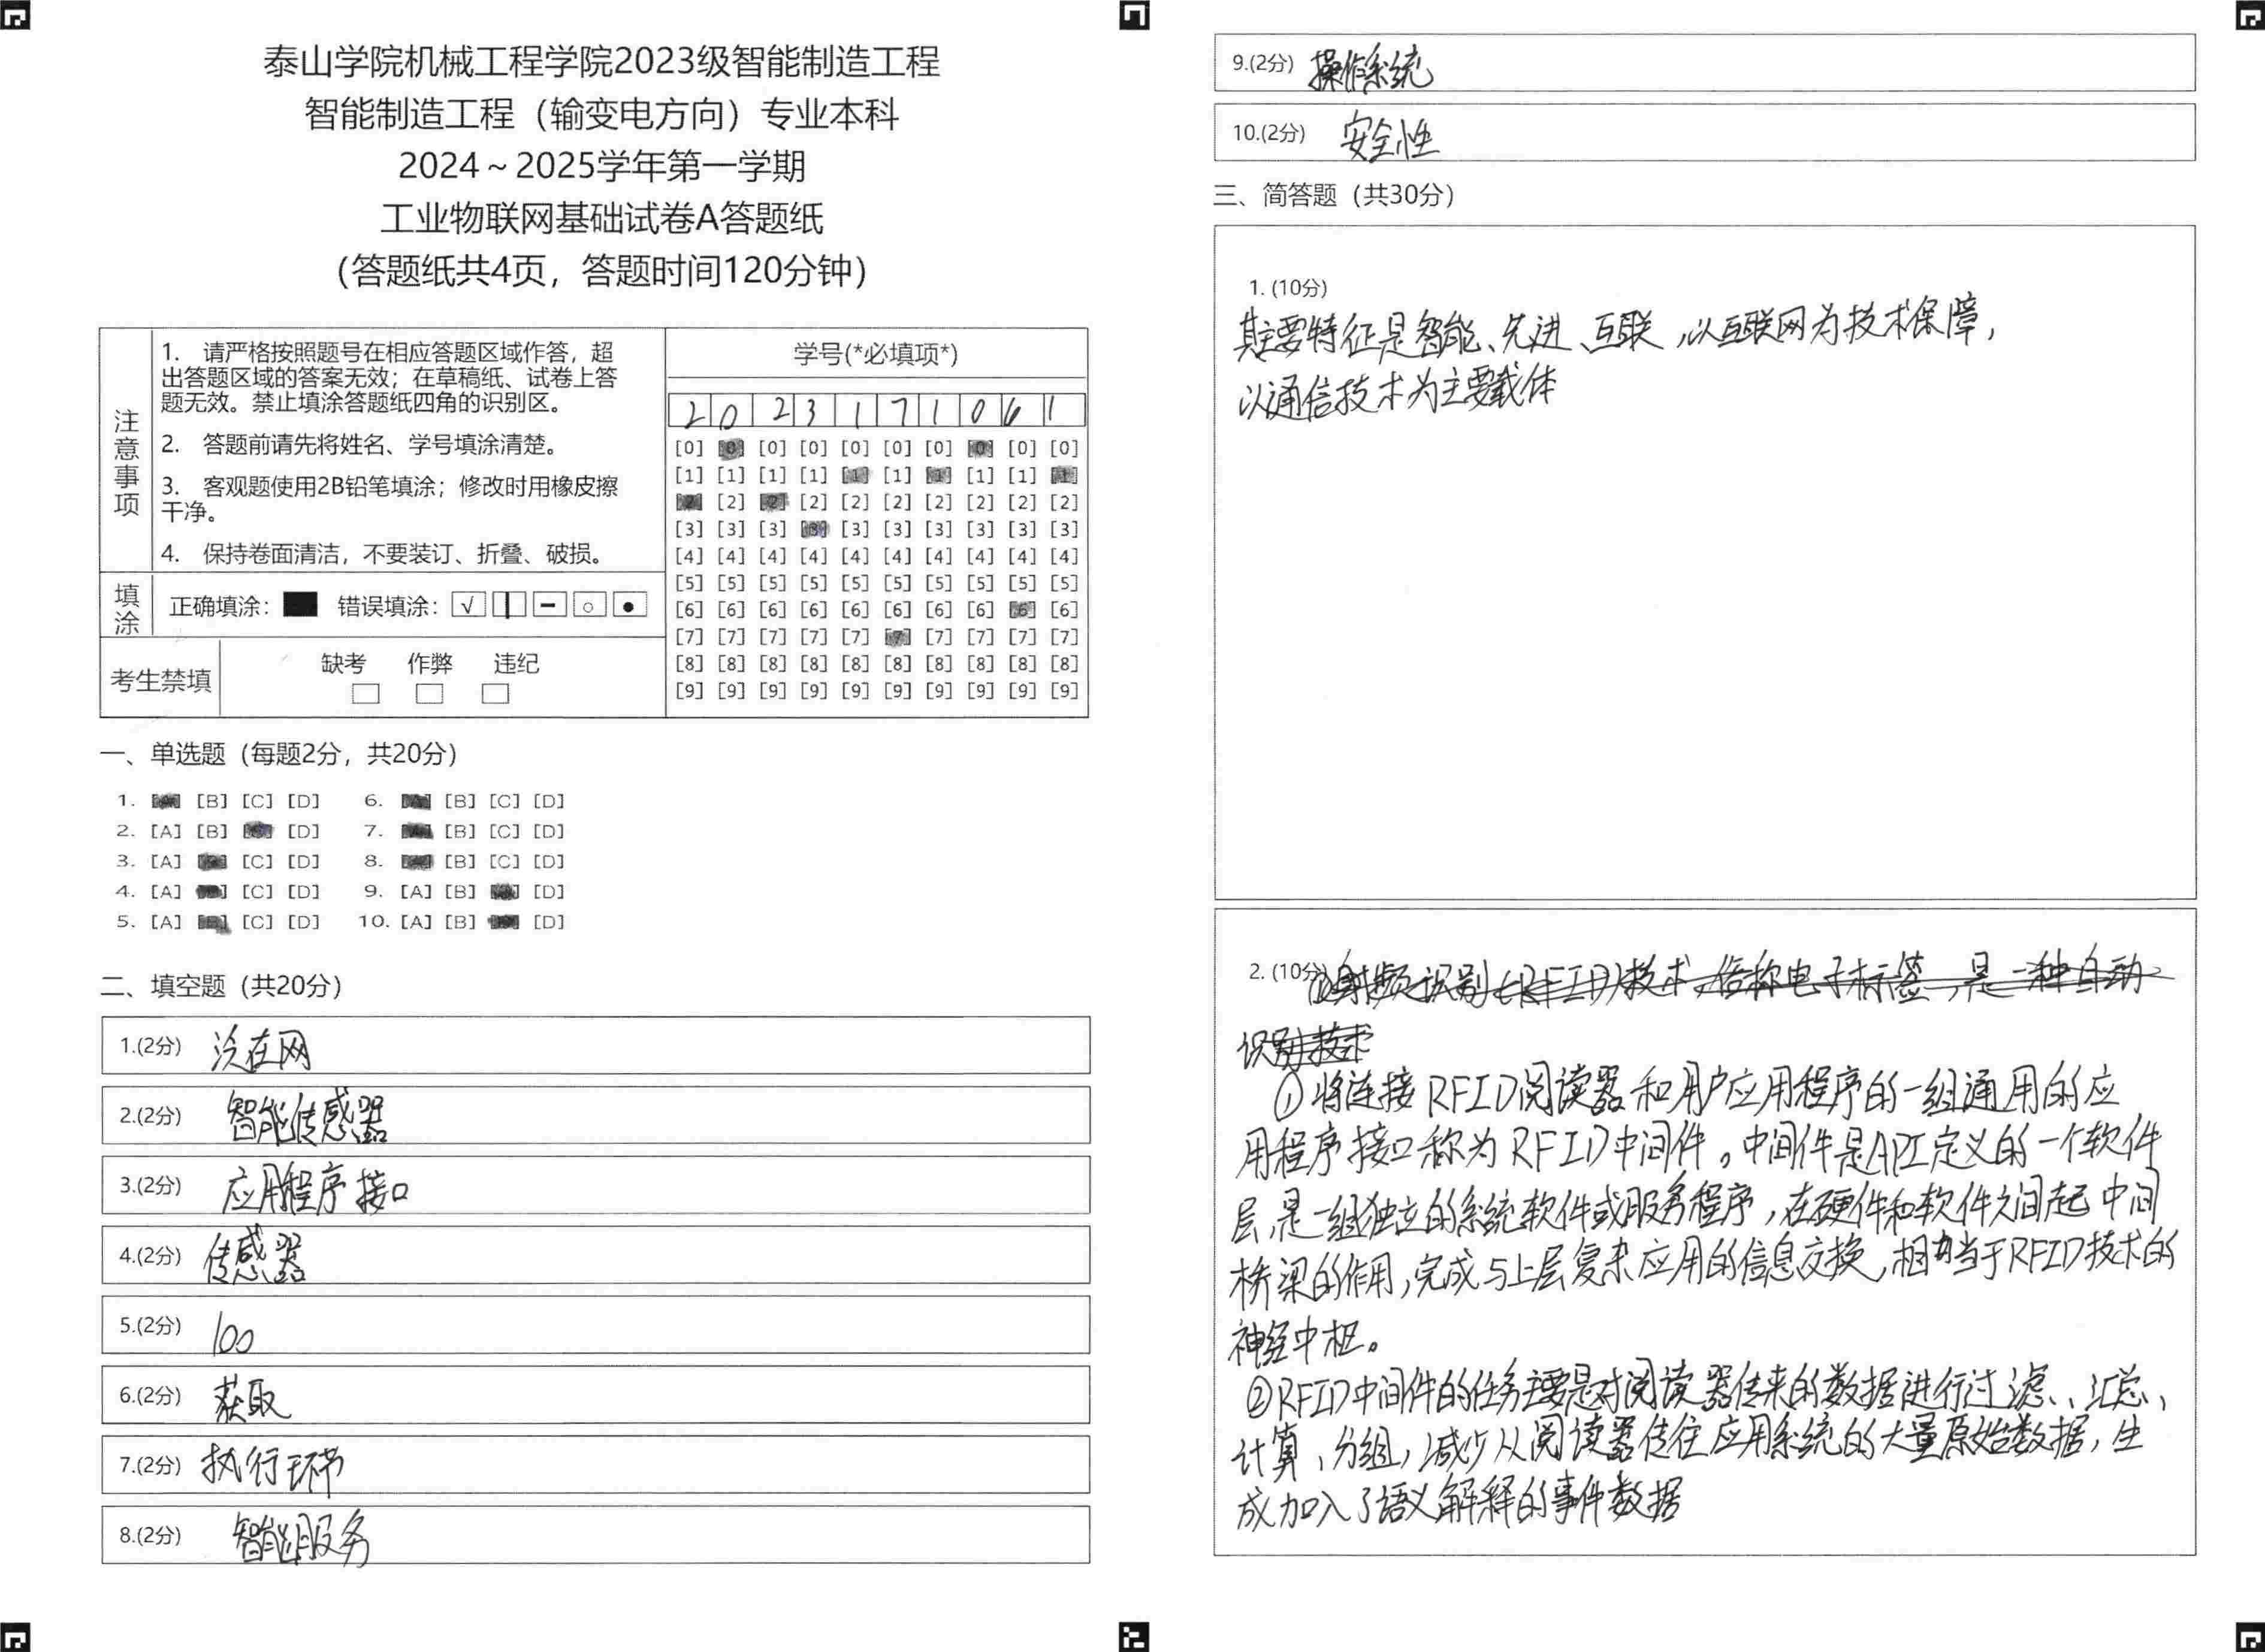 泰山学院机械工程学院2023级智能制造工程
智能制造工程（输变电方向）专业本科
2024～2025学年第一学期
工业物联网基础试卷A答题纸
（答题纸共4页，答题时间120分钟）
注意事项
1. 请严格按照题号在相应答题区域作答，超
出答题区域的答案无效；在草稿纸、试卷上答
题无效。禁止填涂答题纸四角的识别区。
2. 答题前请先将姓名、学号填涂清楚。
3. 客观题使用2B铅笔填涂；修改时用橡皮擦
干净。
4. 保持卷面清洁，不要装订、折叠、破损。
填涂
正确填涂： 错误填涂：
考生禁填
缺考 作弊 违纪
学号(*必填项*)
2 0 2 3 1 7 1 0 6 1
[0] [0] [0] [0] [0] [0] [0] [0] [0] [0]
[1] [1] [1] [1] [1] [1] [1] [1] [1] [1]
[2] [2] [2] [2] [2] [2] [2] [2] [2]
[3] [3] [3] [3] [3] [3] [3] [3] [3] [3]
[4] [4] [4] [4] [4] [4] [4] [4] [4] [4]
[5] [5] [5] [5] [5] [5] [5] [5] [5] [5]
[6] [6] [6] [6] [6] [6] [6] [6] [6] [6]
[7] [7] [7] [7] [7] [7] [7] [7] [7] [7]
[8] [8] [8] [8] [8] [8] [8] [8] [8] [8]
[9] [9] [9] [9] [9] [9] [9] [9] [9] [9]
一、单选题（每题2分，共20分）
1. [B] [C] [D] 6. [B] [C] [D]
2. [A] [B] [D] 7. [B] [C] [D]
3. [A] [C] [D] 8. [B] [C] [D]
4. [A] [C] [D] 9. [A] [B] [D]
5. [A] [B] [C] [D] 10. [A] [B] [D]
二、填空题（共20分）
1.(2分) 泛在网
2.(2分) 智能传感器
3.(2分) 应用程序接口
4.(2分) 传感器
5.(2分) 100
6.(2分) 获取
7.(2分) 执行环节
8.(2分) 智能服务
9.(2分) 操作系统
10.(2分) 安全性
三、简答题（共30分）
1. (10分)
其主要特征是智能、先进、互联，以互联网为技术保障，
以通信技术为主要载体
2. (10分) ①射频识别（RFID）技术，俗称电子标签，是一种自动
识别技术
①将连接RFID阅读器和用户应用程序的一组通用的应
用程序接口称为RFID中间件。中间件是API定义的一个软件
层，是一组独立的系统软件或服务程序，在硬件和软件之间起中间
桥梁的作用，完成与上层复杂应用的信息交换，相当于RFID技术的
神经中枢。
②RFID中间件的任务主要是对阅读器传来的数据进行过滤、汇总、
计算、分组，减少从阅读器传往应用系统的大量原始数据，生
成加入了语义解释的事件数据